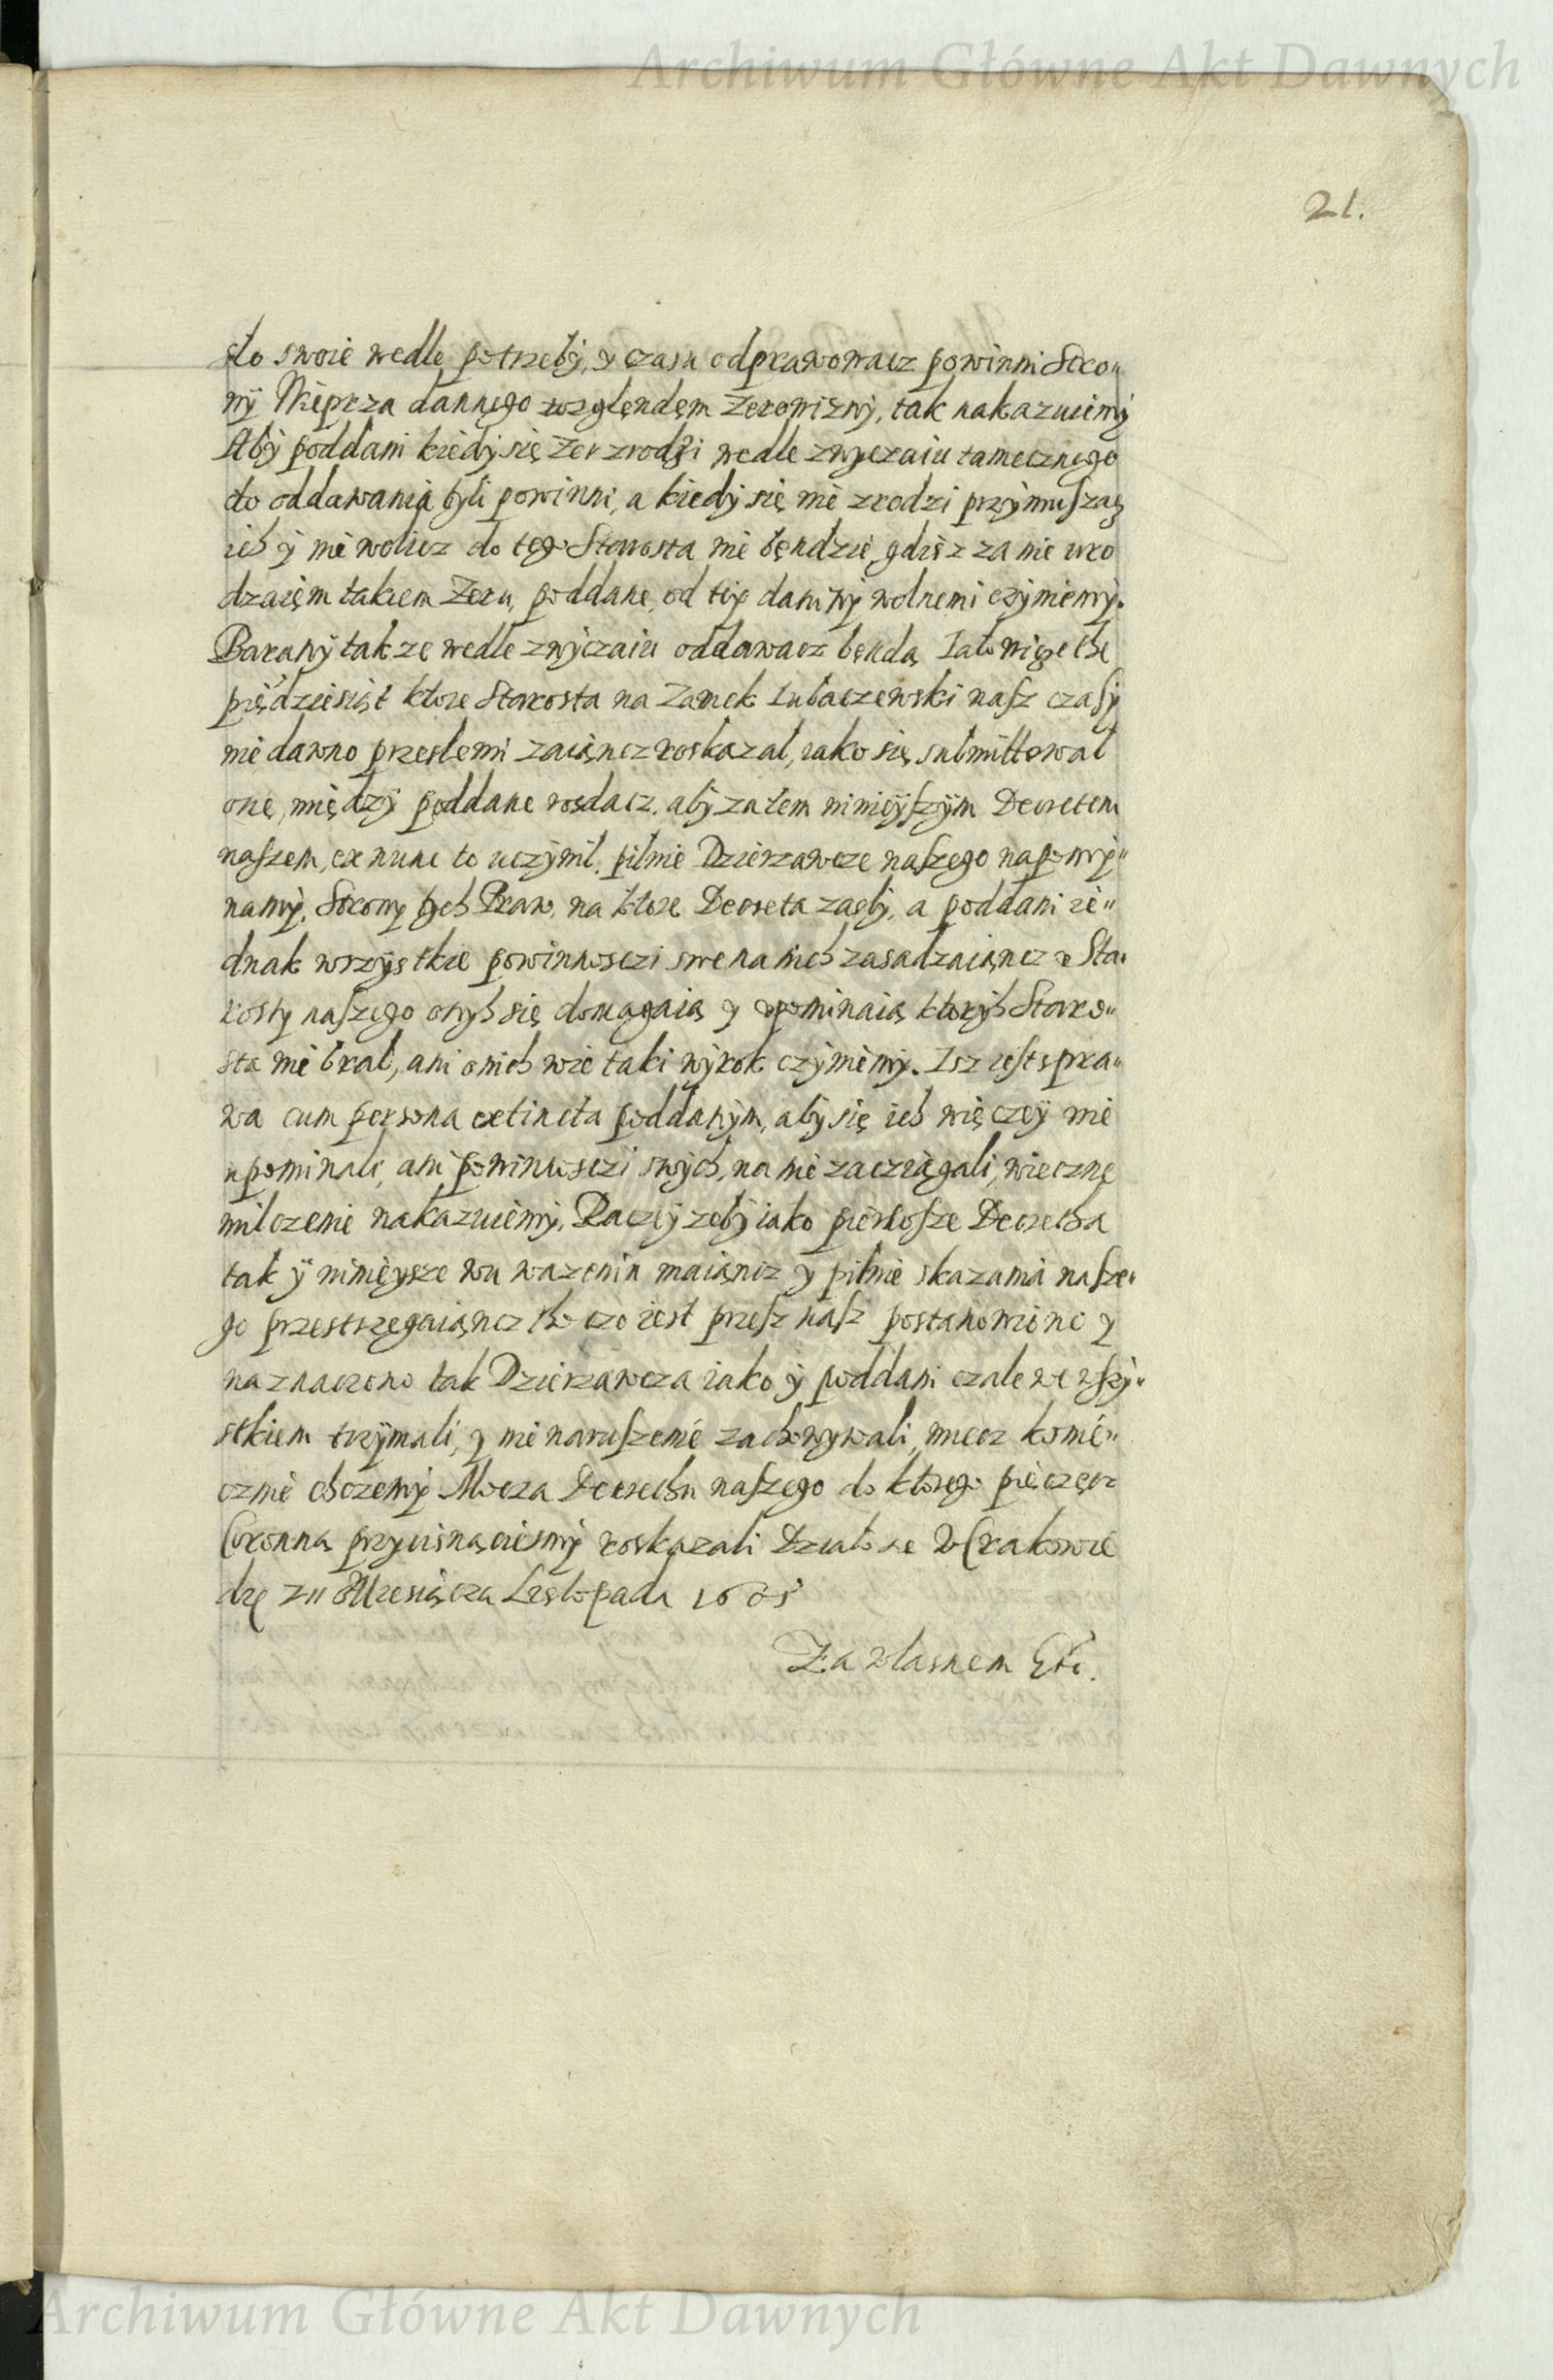 Archiwum Główne Akt Dawnych
21.
sło swoie wedle potrzeby, y czasu odprawowacz powinni Stro„
ny Wieprza dannego wzglendęm Zerowizny, tak nakazuiemy
Aby poddani kiedy się Zer zrodzi wedle zwyczaiu tamecznego
do oddawania byli powinni, a kiedy się nie zrodzi przymuszacz
ich y niewolicz do tego Starosta nie bęndzie, gdisz za nie uro
dzaięm takiem Zeru, poddane, od tey daniny wolnemi czyniemy.
Barany takze wedle zwyczaiu oddawacz bęnda Iałowięcze
pięcdziesiąt ktore Starosta na Zamek Lubaczewski nasz czasy
niedawno przesłemi zaiąncz roskazał, iako się submittował
one, między poddane rosdacz. aby zatem ninieyszym Decretem
naszem, ex nunc to uczynił. pilnie Dzierzawcze naszego napomy„
namy. Strony tych Praw, na ktore Decreta zaszły, a poddani ie„
dnak wszystkie powinnosczi swe na nich zasadzaiąncz u Sta„
rosty naszego onych się domagaią y upominaią ktorych Staro„
sta nie brał, ani o nich wie taki wyrok czyniemy. Isz iest spra„
wa cum persona extincta poddanym, aby się ich więczey nie
upominali, ani powinnosczi swych, na nie zaczięgali, wieczne
milczenie nakazuiemy. Raczey zeby iako pierwsze Decretha
tak y ninieysze wu wazeniu maiąncz y pilnie skazania nasze„
go przestrzegaiąncz tho czo iest przesz nasz postanowiono y
naznaczono tak Dzierzawcza iako y poddani czale we wszy„
stkiem trzymali, y nie naruszenie zachowywali, miecz konie„
cznie chczemy Mocza Decrethu naszego do ktorego pieczęcz
Coronną przycisnąciesmy roskazali Działo se W Crakowie
dzę VII Miesiącza Lystopada 1605
Za własnem Etc.
Archiwum Główne Akt Dawnych